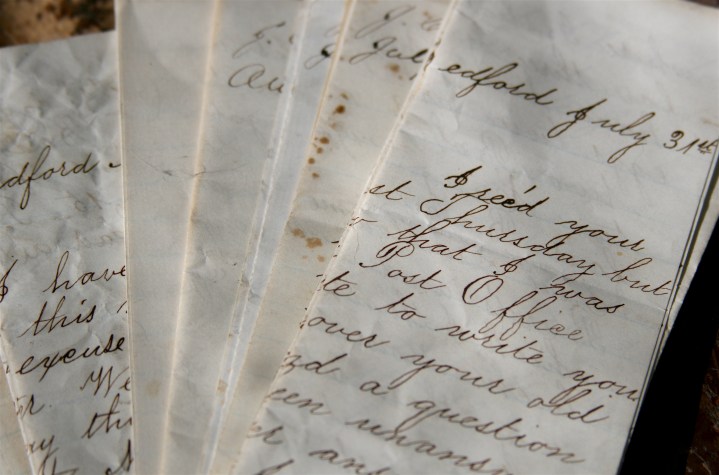 dford
I have
this
excuse
We
July
edford July 31st
I rec'd your
st Thursday but
that I was
Post Office
te to write you
over your old
a question
een unansw